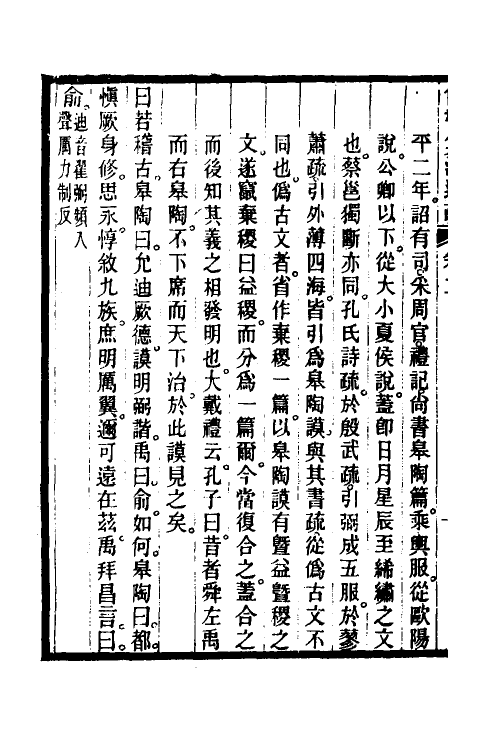 平二年詔有司采周官禮記尚書皋陶篇乘輿服從歐陽
說公卿以下從大小夏侯說蓋卽日月星辰至絺繡之文
也蔡邕獨斷亦同孔氏詩疏於殷武疏引弼成五服於蓼
蕭疏引外薄四海皆引爲皋陶謨與其書疏從僞古文不
同也僞古文者省作棄稷一篇以皋陶謨有曁益曁稷之
文遂竄棄稷曰益稷而分爲一篇爾今當復合之蓋合之
而後知其義之相發明也大戴禮云孔子曰昔者舜左禹
而右皋陶不下席而天下治於此謨見之矣
曰若稽古皋陶曰允迪厥德謨明弼諧禹曰俞如何皋陶曰都
愼厥身修思永惇敘九族庶明厲翼邇可遠在茲禹拜昌言曰
俞迪音翟弼頻入
聲厲力制反